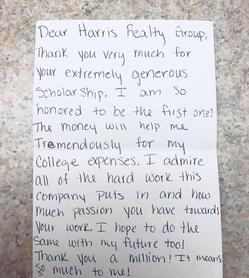 Dear Harris Realty Group,
Thank you very much for
your extremely generous
Scholarship. I am so
honored to be the first one!
The money will help me
Tremendously for my
College expenses. I admire
all of the hard work this
company puts in and how
much passion you have towards
your work. I hope to do the
same with my future too!
Thank you a million! It means
so much to me!